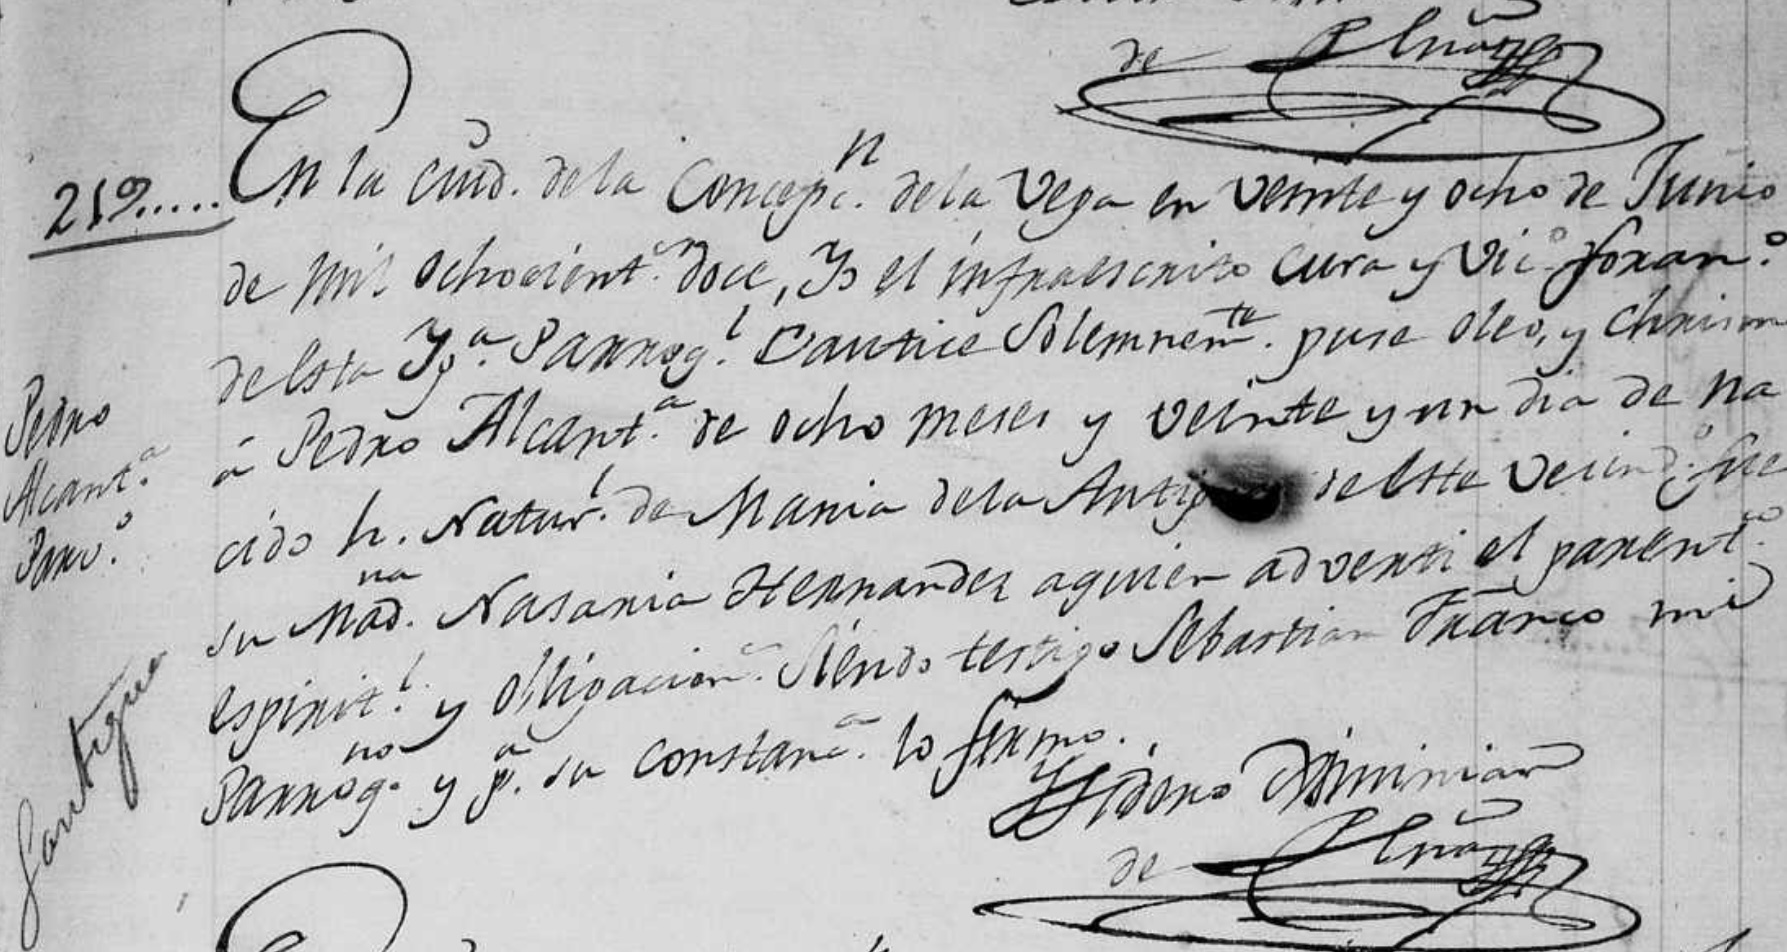 de Peña
219.....
En la ciud. de la Concepcn. de la Vega en veinte y ocho de Junio
de mil ochocient.s doce, Yo el infraescrito Cura y Vico. foran.o
de esta Yga. Parrog.l Bautice Solemnemte. puse oleo, y Chrisma
á Pedro Alcant.a de ocho meses y veinte y un dia de na
cido h. Natur.l de Maria de la Antig de este Vecind.o fue
su Madna. Nasaria Hernandez aquien adverti el parent.co
espirit.l y obligacion.s Siendo testigo Sebastian Franco mi
Parrogno. y pa. su constanc.a lo firmo.
Ysidoro
de Peña
Pedro
Alcant.a
Parv.o